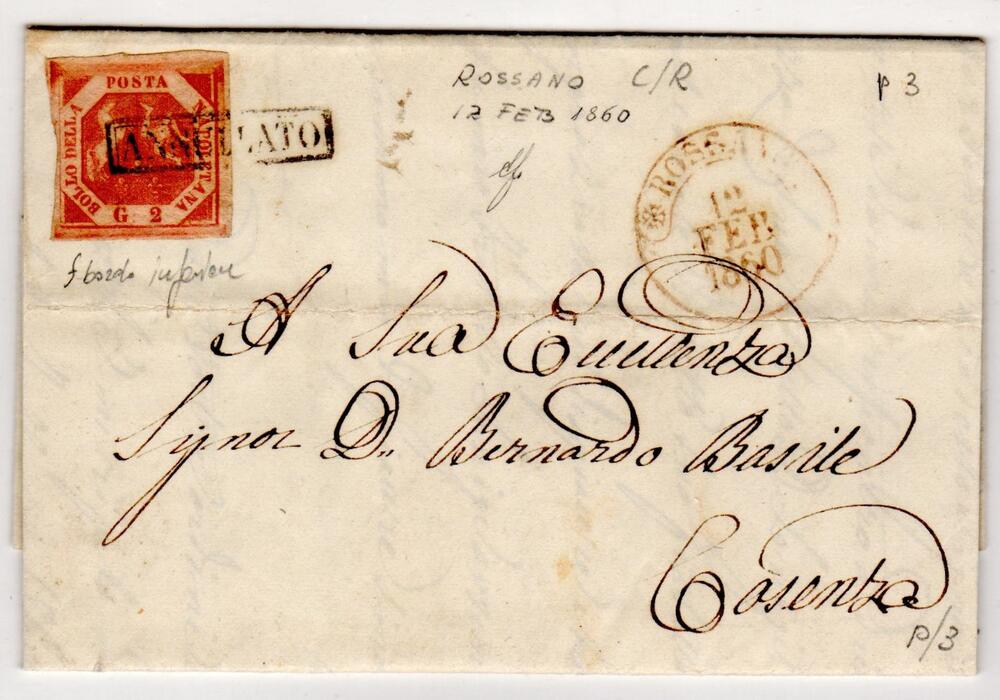 POSTA
NAPOLETANA
BOLLO DELLA
G 2
ANNULLATO
ROSSANO C/R
P 3
12 FEB 1860
ROSSANO
12
FEB
1860
f. bordo inferiore
A Sua Eccellenza
Signor D. Bernardo Basile
Cosenza
P/3